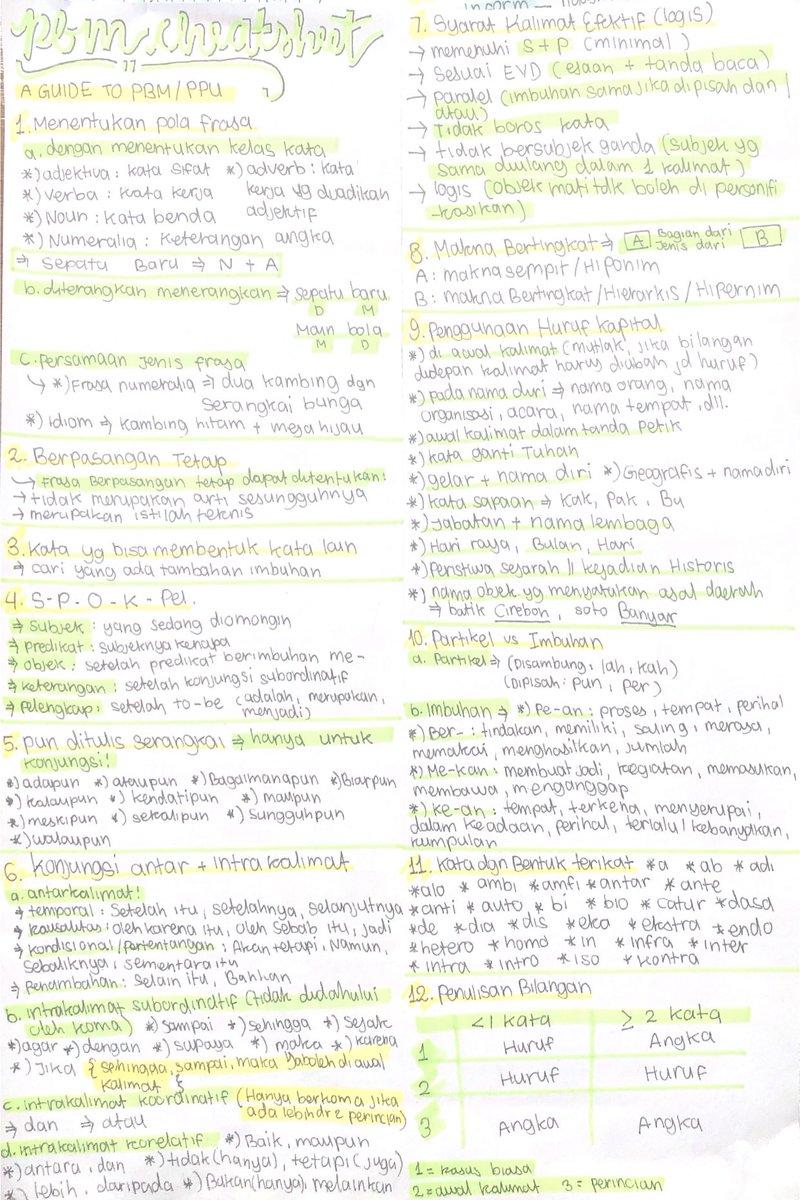 pbm cheatsheet
A GUIDE TO PBM/PPU
1. Menentukan pola frasa
a. dengan menentukan kelas kata
*) adjektiva : kata sifat *) adverb : kata
*) verba : kata kerja kerja yg dijadikan
*) Noun : kata benda adjektif
*) Numeralia : keterangan angka
⇒ Sepatu Baru ⇒ N + A
b. diterangkan menerangkan ⇒ sepatu baru
D M
Main bola
M D
c. persamaan jenis frasa
↳ *) Frasa numeralia ⇒ dua kambing dgn
serangkai bunga
*) idiom ⇒ kambing hitam + meja hijau
2. Berpasangan Tetap
↳ Frasa Berpasangan tetap dapat ditentukan!
→ tidak merupakan arti sesungguhnya
→ merupakan istilah teknis
3. Kata yg bisa membentuk kata lain
⇒ cari yang ada tambahan imbuhan
4. S-P-O-K-Pel.
⇒ subjek : yang sedang diomongin
⇒ predikat : subjeknya kenapa
⇒ objek : setelah predikat berimbuhan me-
⇒ keterangan : setelah konjungsi subordinatif
⇒ pelengkap : setelah to-be (adalah, merupakan,
menjadi)
5. pun ditulis serangkai ⇒ hanya untuk
konjungsi!
*) adapun *) ataupun *) Bagaimanapun *) Biarpun
*) kalaupun *) kendatipun *) maupun
*) meskipun *) sekalipun *) sungguhpun
*) walaupun
6. Konjungsi antar + intrakalimat
a. antarkalimat!
⇒ temporal : setelah itu, setelahnya, selanjutnya
⇒ kausalitas : oleh karena itu, oleh sebab itu, jadi
⇒ kondisional/pertentangan : Akan tetapi, Namun,
sebaliknya, sementara itu
⇒ Penambahan : selain itu, Bahkan
b. intrakalimat subordinatif (tidak didahului
oleh koma) *) sampai *) sehingga *) sejak
*) agar *) dengan *) supaya *) maka *) karena
*) Jika { sehingga, sampai, maka gaboleh di awal
kalimat }
c. intrakalimat koordinatif (Hanya berkoma jika
⇒ dan ⇒ atau ada lebih dr 2 perincian)
d. intrakalimat korelatif *) Baik, maupun
*) antara, dan *) tidak (hanya), tetapi (juga)
*) lebih, daripada *) Bukan (hanya), melainkan
7. Syarat Kalimat Efektif (logis)
→ memenuhi S+P (minimal)
→ Sesuai EYD (ejaan + tanda baca)
→ paralel (imbuhan sama jika dipisah dan /
atau)
→ Tidak boros kata
→ tidak bersubjek ganda (subjek yg
sama diulang dalam 1 kalimat)
→ logis (objek mati tdk boleh di personifi
-kasikan)
8. Makna Bertingkat ⇒ A Bagian dari B
Jenis dari
A : makna sempit / Hiponim
B : makna Bertingkat / Hierarkis / Hipernim
9. Penggunaan Huruf Kapital
*) di awal kalimat (mutlak, jika bilangan
didepan kalimat harus diubah jd huruf)
*) pada nama diri ⇒ nama orang, nama
organisasi, acara, nama tempat, dll.
*) awal kalimat dalam tanda petik
*) kata ganti Tuhan
*) gelar + nama diri *) Geografis + nama diri
*) kata sapaan ⇒ Kak, Pak, Bu
*) Jabatan + nama lembaga
*) Hari raya, Bulan, Hari
*) Peristiwa sejarah // kejadian Historis
*) nama objek yg menyatakan asal daerah
⇒ batik Cirebon, soto Banjar
10. Partikel vs Imbuhan
a. Partikel ⇒ (Disambung : lah, kah)
(Dipisah : pun, per)
b. Imbuhan ⇒ *) Pe-an : proses, tempat, perihal
*) Ber- : tindakan, memiliki, saling, merasa,
memakai, menghasilkan, jumlah
*) Me-kan : membuat jadi, kegiatan, memasukan,
membawa, menganggap
*) ke-an : tempat, terkena, menyerupai,
dalam keadaan, perihal, terlalu/kebanyakan,
kumpulan
11. Kata dgn Bentuk terikat * a * ab * adi
* alo * ambi * amfi * antar * ante
* anti * auto * bi * bio * catur * dasa
* de * dia * dis * eka * ekstra * endo
* hetero * homo * in * infra * inter
* intra * intro * iso * kontra
12. Penulisan Bilangan
<1 kata ≥ 2 kata
1 Huruf Angka
2 Huruf Huruf
3 Angka Angka
1 = kasus biasa
2 = awal kalimat 3 = perincian